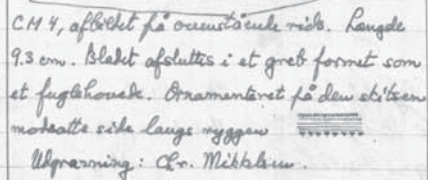 CM4, afbildet på ovenstående side. Længde
9.3 cm. Bladet afsluttis i et greb formet som
et fuglehoved. Ornamenteret på den skitsen
modsatte side langs ryggen
Udgravning: Chr. Mikkelsen.